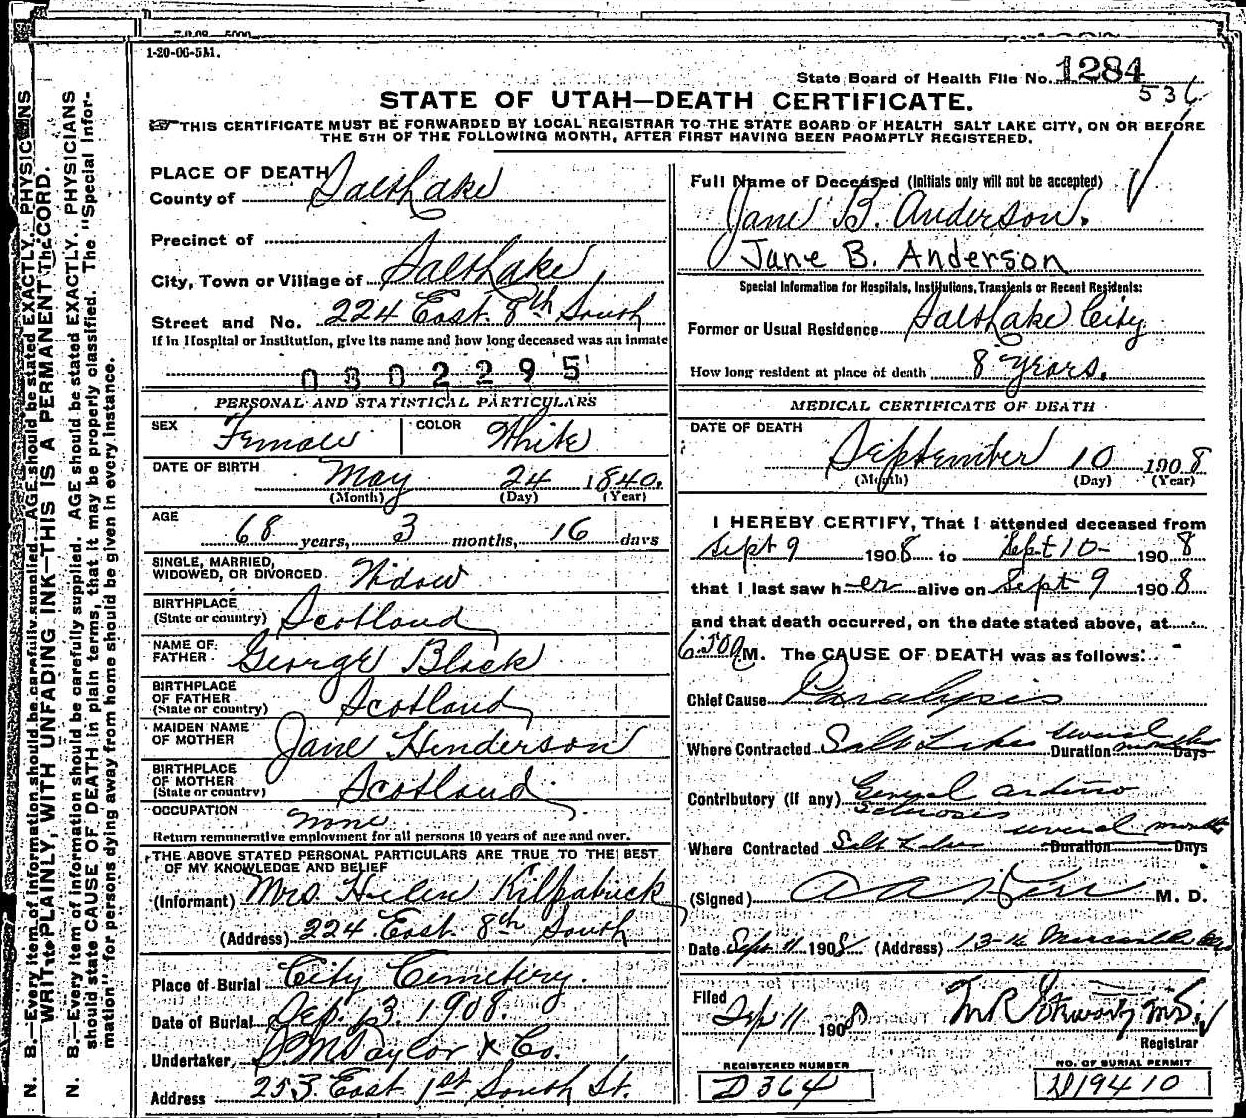 1-20-06-5M.
State Board of Health File No. 1284
536
STATE OF UTAH—DEATH CERTIFICATE.
THIS CERTIFICATE MUST BE FORWARDED BY LOCAL REGISTRAR TO THE STATE BOARD OF HEALTH SALT LAKE CITY, ON OR BEFORE
THE 5TH OF THE FOLLOWING MONTH, AFTER FIRST HAVING BEEN PROMPTLY REGISTERED.
N. B.—Every item of information should be carefully supplied. AGE should be stated EXACTLY. PHYSICIANS
WRITE PLAINLY, WITH UNFADING INK—THIS IS A PERMANENT RECORD.
N. B.—Every item of information should be carefully supplied. AGE should be stated EXACTLY. PHYSICIANS
should state CAUSE OF DEATH in plain terms, that it may be properly classified. The "Special Infor-
mation" for persons dying away from home should be given in every instance.
PLACE OF DEATH
County of Salt Lake
Precinct of
City, Town or Village of Salt Lake
Street and No. 224 East 8th South
If in Hospital or Institution, give its name and how long deceased was an inmate
0802295
PERSONAL AND STATISTICAL PARTICULARS
SEX Female COLOR White
DATE OF BIRTH May 24 1840.
(Month) (Day) (Year)
AGE 68 years, 3 months, 16 days
SINGLE, MARRIED,
WIDOWED, OR DIVORCED. Widow
BIRTHPLACE
(State or country) Scotland
NAME OF
FATHER George Black
BIRTHPLACE
OF FATHER
(State or country) Scotland
MAIDEN NAME
OF MOTHER Jane Henderson
BIRTHPLACE
OF MOTHER
(State or country) Scotland
OCCUPATION None
Return remunerative employment for all persons 10 years of age and over.
THE ABOVE STATED PERSONAL PARTICULARS ARE TRUE TO THE BEST
OF MY KNOWLEDGE AND BELIEF
(Informant) Mrs. Helen Kilpatrick
(Address) 224 East 8th South
Place of Burial City Cemetery.
Date of Burial Sep. 13. 1908.
Undertaker, S M Taylor & Co.
Address 253 East 1st South St.
Full Name of Deceased (Initials only will not be accepted)
Jane B. Anderson.
Jane B. Anderson
Special Information for Hospitals, Institutions, Transients or Recent Residents:
Former or Usual Residence Salt Lake City
How long resident at place of death 8 years.
MEDICAL CERTIFICATE OF DEATH
DATE OF DEATH
September 10 1908
(Month) (Day) (Year)
I HEREBY CERTIFY, That I attended deceased from
Sept 9 1908 to Sept 10 - 1908
that I last saw her alive on Sept 9 1908
and that death occurred, on the date stated above, at
M. The CAUSE OF DEATH was as follows:
Chief Cause Paralysis
Where Contracted Salt Lake Duration several months Days
Contributory (if any) General Arterio
Sclerosis
Where Contracted Salt Lake Duration several months Days
(Signed) M. D.
Date Sept 11 1908 (Address) 13-16
Filed
Sep 11 1908
Registrar
REGISTERED NUMBER
D364
NO. OF BURIAL PERMIT
D19410